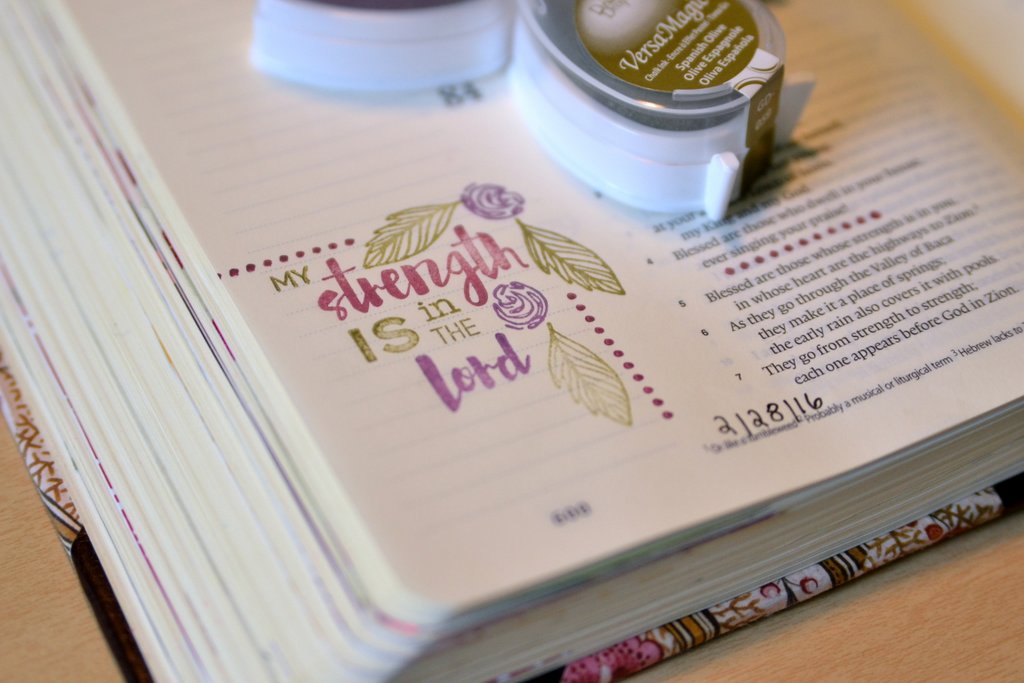 VersaMagic
Chalk Ink
Spanish Olive
Olive Espagnole
Oliva Española
84
MY
strength
IS in
THE
lord
at your
my King and my God.
4 Blessed are those who dwell in your house,
ever singing your praise!
5 Blessed are those whose strength is in you,
in whose heart are the highways to Zion.
6 As they go through the Valley of Baca
they make it a place of springs;
the early rain also covers it with pools.
7 They go from strength to strength;
each one appears before God in Zion.
2/28/16
1 Or like a tumbleweed 2 Probably a musical or liturgical term 3 Hebrew lacks to